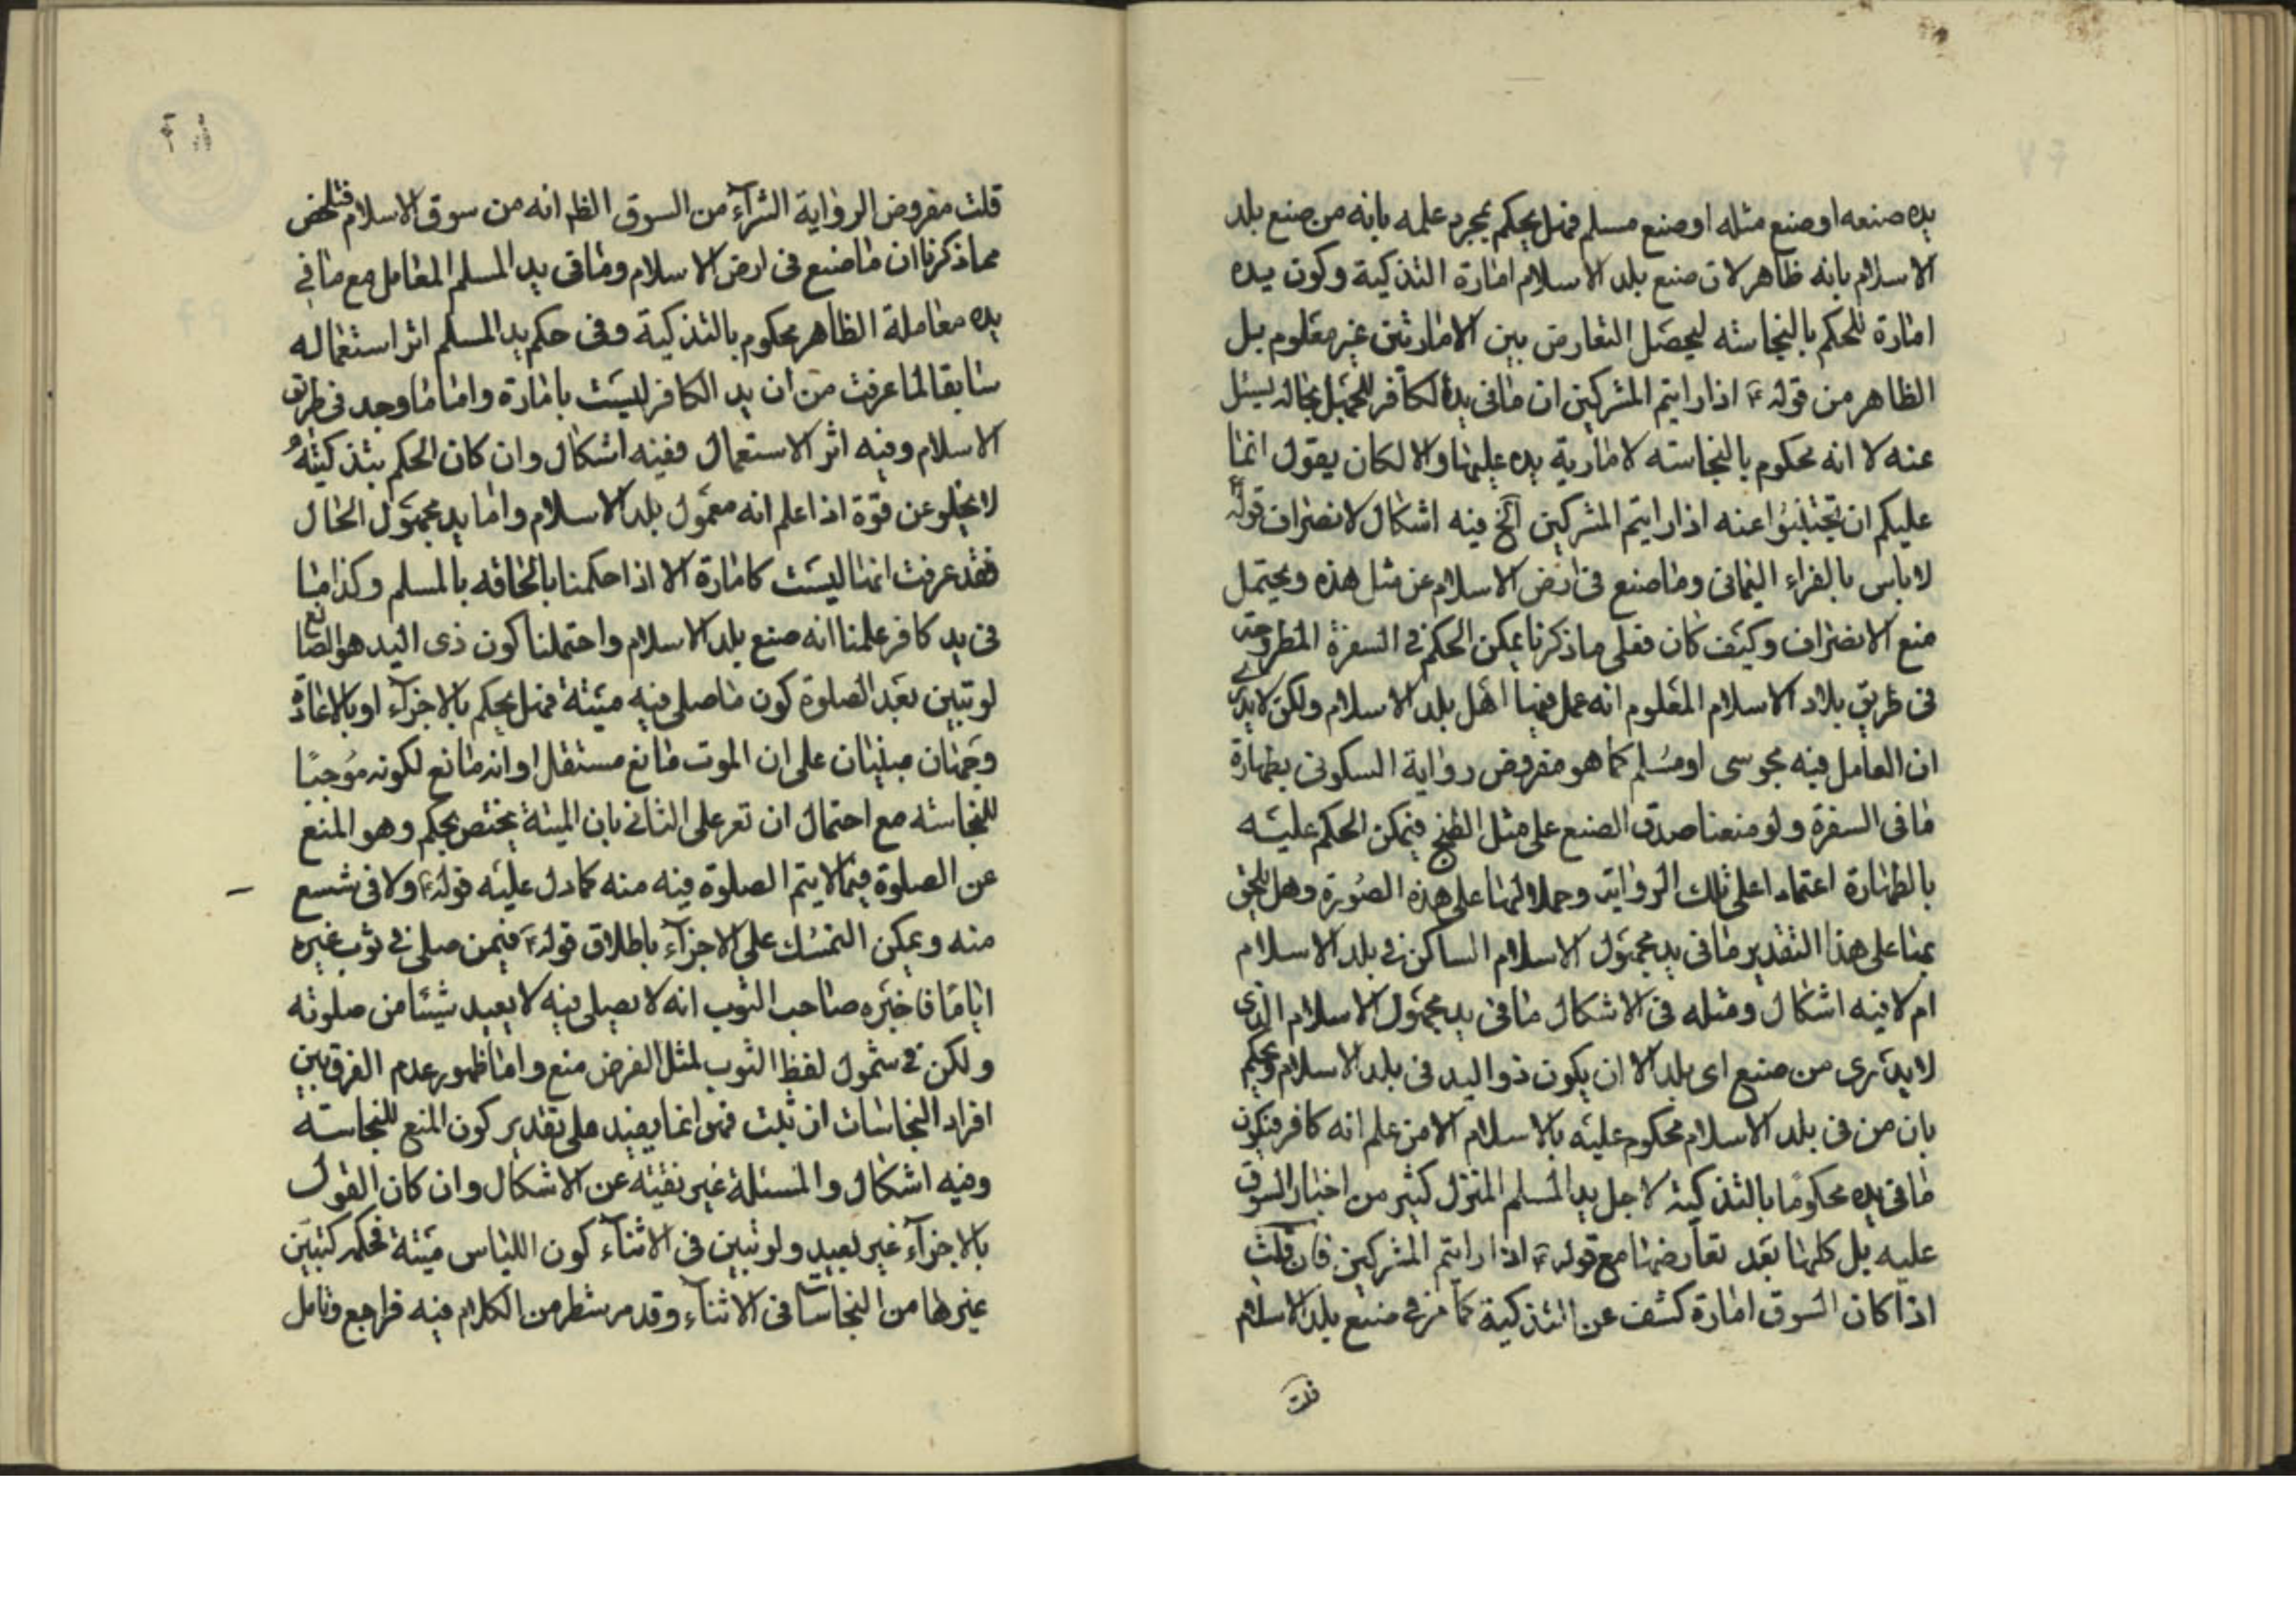 يده صنعه او صنع مثله او صنع مسلم فهل يحكم بمجرد علمه بانه من صنع بلد
الاسلام بانه ظاهر لان صنع بلد الاسلام امارة التذكية وكون يده
امارة للحكم بالنجاسته ليحصل التعارض بين الامارتين غير معلوم بل
الظاهر من قوله ع اذا رايتم المشركين ان ما في يد الكافر للجهل بحاله يسئل
عنه لا انه محكوم بالنجاسته لامارية يده عليها والا لكان يقول انما
عليكم ان تجتنبوا عنه اذا رايتم المشركين الخ فيه اشكال لانصراف قوله ع
لا باس بالفراء اليماني وما صنع في ارض الاسلام عن مثل هذه ويحتمل
منع الانصراف وكيف كان فعلى ما ذكرنا يمكن الحكم في السفرة المطروحة
في طريق بلاد الاسلام المعلوم انه عمل فيها اهل بلد الاسلام ولكن لا يدرى
ان العامل فيه مجوسى او مسلم كما هو مفروض رواية السكونى بطهارة
ما في السفرة ولو منعنا صدق الصنع على مثل الطبخ فيمكن الحكم عليه
بالطهارة اعتمادا على تلك الرواية وحملا لها على هذه الصورة وهل يلحق
بها على هذا التقدير ما في يد مجهول الاسلام الساكن في بلد الاسلام
ام لا فيه اشكال ومثله في الاشكال ما في يد مجهول الاسلام الذى
لا يدرى من صنع اى بلد الا ان يكون ذو اليد في بلد الاسلام ويحكم
بان من في بلد الاسلام محكوم عليه بالاسلام الا من علم انه كافر فيكون
ما في يده محكوما بالتذكية لاجل يد المسلم المنزل كثير من اخبار السوق
عليه بل كلها بعد تعارضها مع قوله ع اذا رايتم المشركين فان قلت
اذا كان السوق امارة كشف عن التذكية كما مر في صنع بلد الاسلام
قلت
قلت مفروض الرواية الشراء من السوق الظ انه من سوق الاسلام فتلخص
مما ذكرنا ان ما صنع في ارض الاسلام وما في يد المسلم المعامل مع ما في
يده معاملة الظاهر محكوم بالتذكية وفي حكم يد المسلم اثر استعماله
سابقا لما عرفت من ان يد الكافر ليست بامارة واما ما وجد في طريق
الاسلام وفيه اثر الاستعمال ففيه اشكال وان كان الحكم بتذكيته
لا يخلو عن قوة اذا علم انه معمول بلد الاسلام واما يد مجهول الحال
فقد عرفت انها ليست كامارة الا اذا حكمنا بالحاقه بالمسلم وكذا ما
في يد كافر علمنا انه صنع بلد الاسلام واحتملنا كون ذى اليد هو الصانع
لو تبين بعد الصلوة كون ما صلى فيه ميتة فهل يحكم بالاجزاء او بالاعادة
وجهان مبنيان على ان الموت مانع مستقل او انه مانع لكونه موجبا
للنجاسته مع احتمال ان تعر على الثاني بان الميتة يختص بحكم وهو المنع
عن الصلوة فيما لا يتم الصلوة فيه منه كما دل عليه قوله ع ولا في شسع
منه ويمكن التمسك على الاجزاء باطلاق قوله ع فيمن صلى في ثوب غيره
اياما فاخبره صاحب الثوب انه لا يصلى فيه لا يعيد شيئا من صلوته
ولكن في شمول لفظ الثوب لمثل الفرض منع واما ظهور عدم الفرق بين
افراد النجاسات ان ثبت فهو انما يفيد على تقدير كون المنع للنجاسته
وفيه اشكال والمسئلة غير نقيته عن الاشكال وان كان القول
بالاجزاء غير بعيد ولو تبين في الاثناء كون اللباس ميتة فحكمه كتبين
غيرها من النجاسات في الاثناء وقد مر شطر من الكلام فيه فراجع وتامل